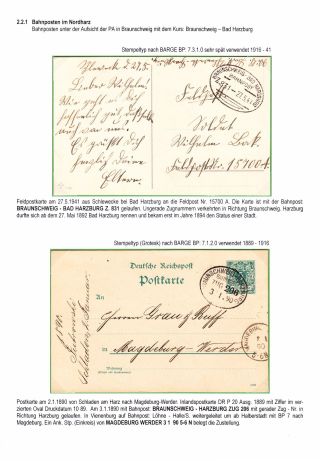 2.2.1 Bahnposten im Nordharz
Bahnposten unter der Aufsicht der PA in Braunschweig mit dem Kurs: Braunschweig – Bad Harzburg
Stempeltyp nach BARGE BP: 7.3.1.0 sehr spät verwendet 1916 - 41
Lieber Wilhelm.
Wie geht es
Eltern.
Feldpost
Soldat
Wilhelm
Feldpostkarte am 27.5.1941 aus Schlewecke bei Bad Harzburg an die Feldpost Nr. 15700 A. Die Karte ist mit der Bahnpost:
BRAUNSCHWEIG - BAD HARZBURG Z. 831 gelaufen. Ungerade Zugnummern verkehrten in Richtung Braunschweig. Harzburg
durfte sich ab dem 27. Mai 1892 Bad Harzburg nennen und bekam erst im Jahre 1894 den Status einer Stadt.
Stempeltyp (Grotesk) nach BARGE BP: 7.1.2.0 verwendet 1889 - 1916
Deutsche Reichspost
Postkarte
ZUG 206
3 1 90
Herren Grau & Huff
in Magdeburg-Werder
Postkarte am 2.1.1890 von Schladen am Harz nach Magdeburg-Werder. Inlandspostkarte DR P 20 Ausg: 1889 mit Ziffer im ver-
zierten Oval Druckdatum 10 89. Am 3.1.1890 mit Bahnpost: BRAUNSCHWEIG - HARZBURG ZUG 206 mit gerader Zug - Nr. in
Richtung Harzburg gelaufen. In Vienenburg auf Bahnpost Löhne - Halle/S. weitergeleitet um ab Halberstadt mit BP 7 nach
Magdeburg. Ein Ank. Stp. (Einkreis) von MAGDEBURG WERDER 3 1 90 5-6 N belegt die Zustellung.